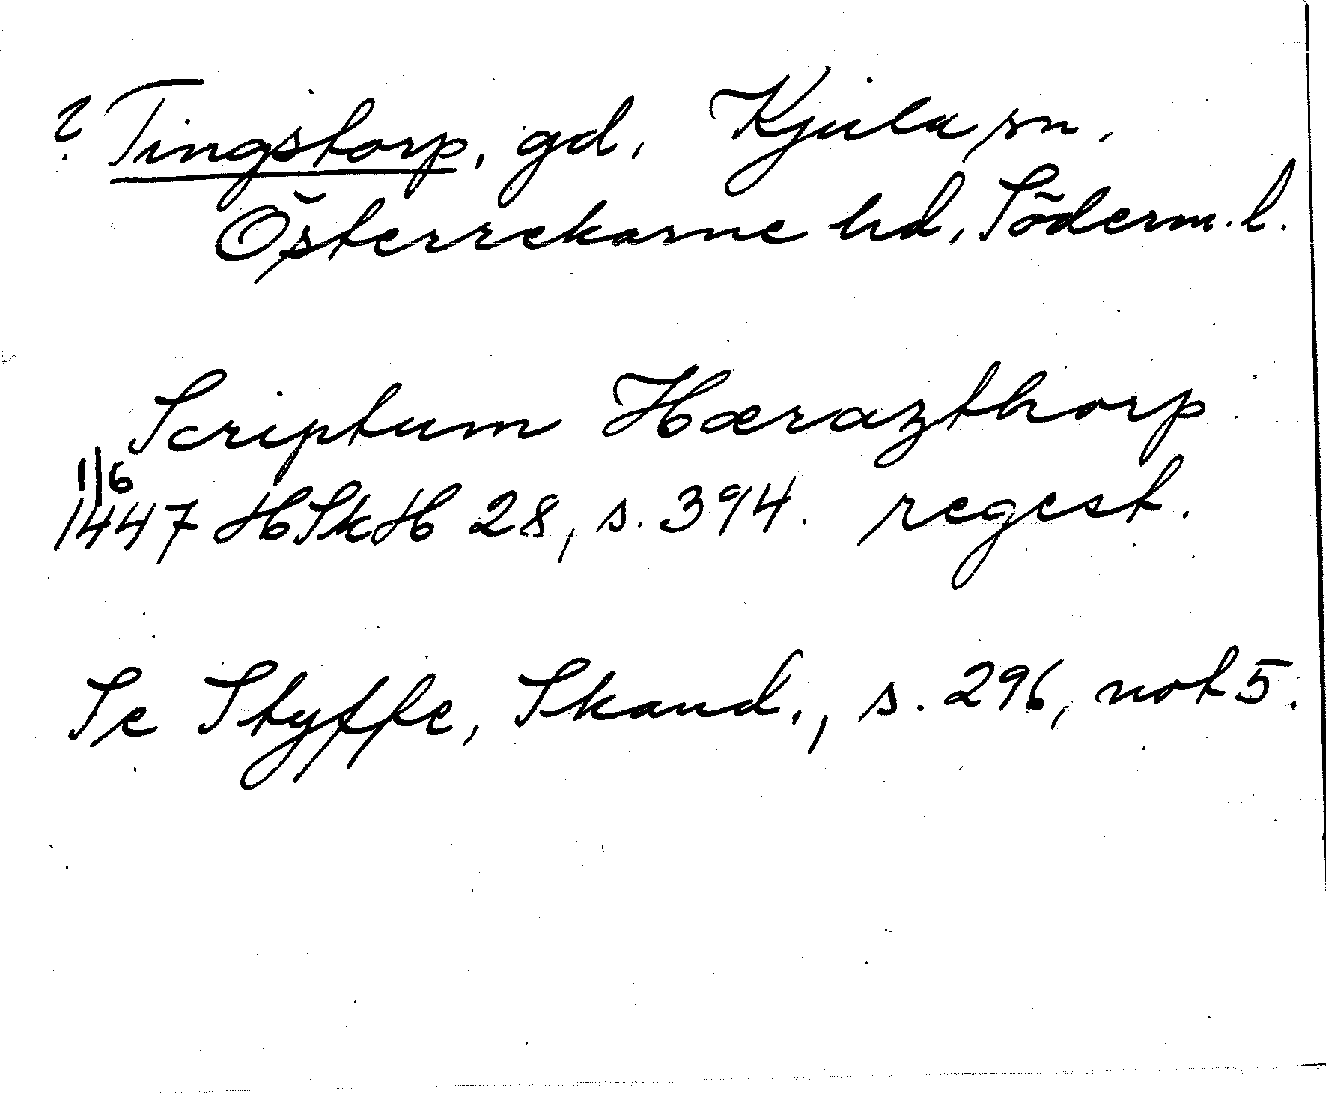 ? Tingstorp, gd, Kjula sn,
Österrekarne hd, Söderm. l.
Scriptum Hærazthorp
1/6
1447 HSkH 28, s. 394. regest.
Se Styffe, Skand., s. 296, not 5.